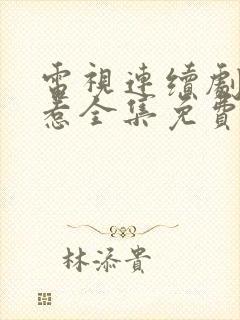 電視連續劇
惹全集免費
林添貴